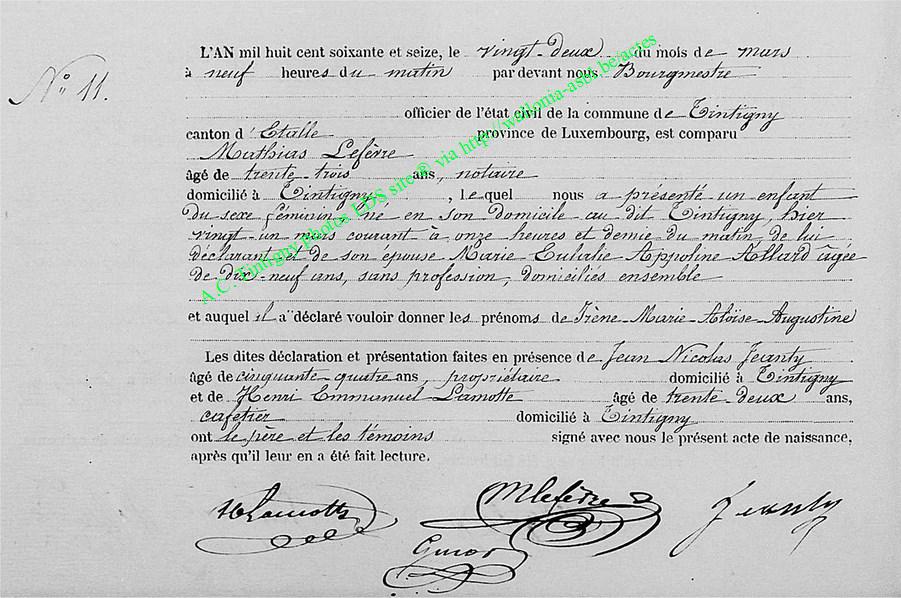 N° 11.
L'AN mil huit cent soixante et seize, le vingt-deux du mois de mars
à neuf heures du matin par devant nous Bourgmestre
officier de l'état civil de la commune de Tintigny
canton d'Etalle province de Luxembourg, est comparu
Mathias Lefèvre
âgé de trente-trois ans, notaire
domicilié à Tintigny, lequel nous a présenté un enfant
du sexe féminin né en son domicile au dit Tintigny, hier
vingt-un mars courant à onze heures et demie du matin de lui
déclarant et de son épouse Marie Eulalie Appoline Allard âgée
de dix-neuf ans, sans profession, domiciliés ensemble
et auquel il a déclaré vouloir donner les prénoms de Irène-Marie-Aloïse-Augustine
Les dites déclaration et présentation faites en présence de Jean Nicolas Jeanty
âgé de cinquante-quatre ans, propriétaire domicilié à Tintigny
et de Henri Emmanuel Lamotte âgé de trente-deux ans,
cafetier domicilié à Tintigny
ont le père et les témoins signé avec nous le présent acte de naissance,
après qu'il leur en a été fait lecture.
HLamotte MLefèvre Jeanty
A.C. Tintigny photos LDS site® via http://wallonia-asbl.be/actes